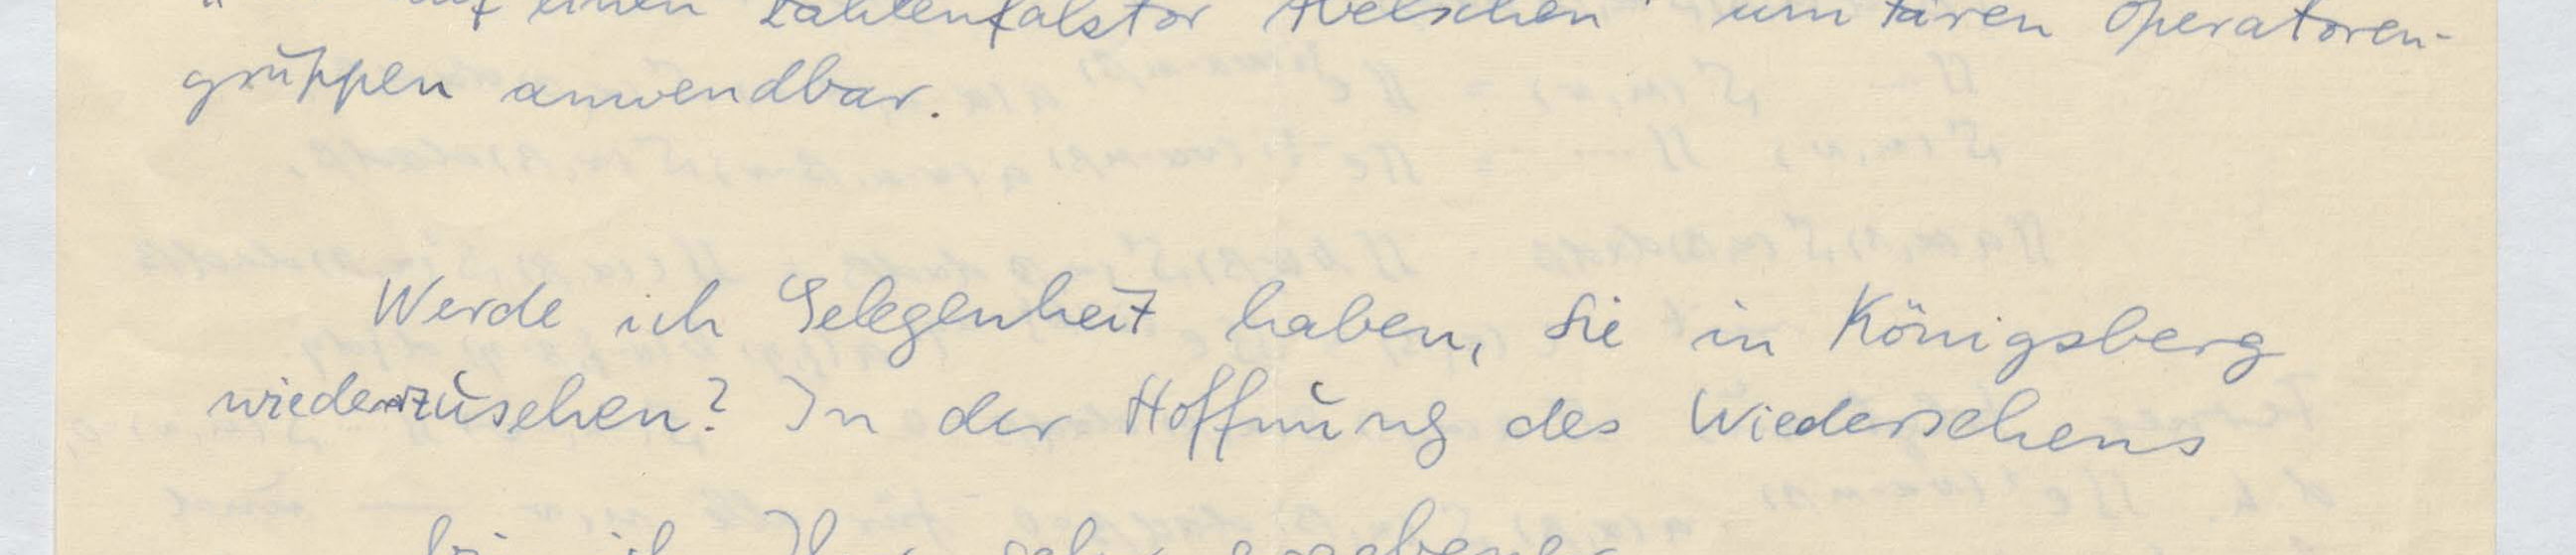 auf einen Zahlenfaktor Abelschen unitären Operatoren-
gruppen anwendbar.
Werde ich Gelegenheit haben, Sie in Königsberg
wiederzusehen? In der Hoffnung des Wiedersehens
bin ich Ihr sehr ergebener